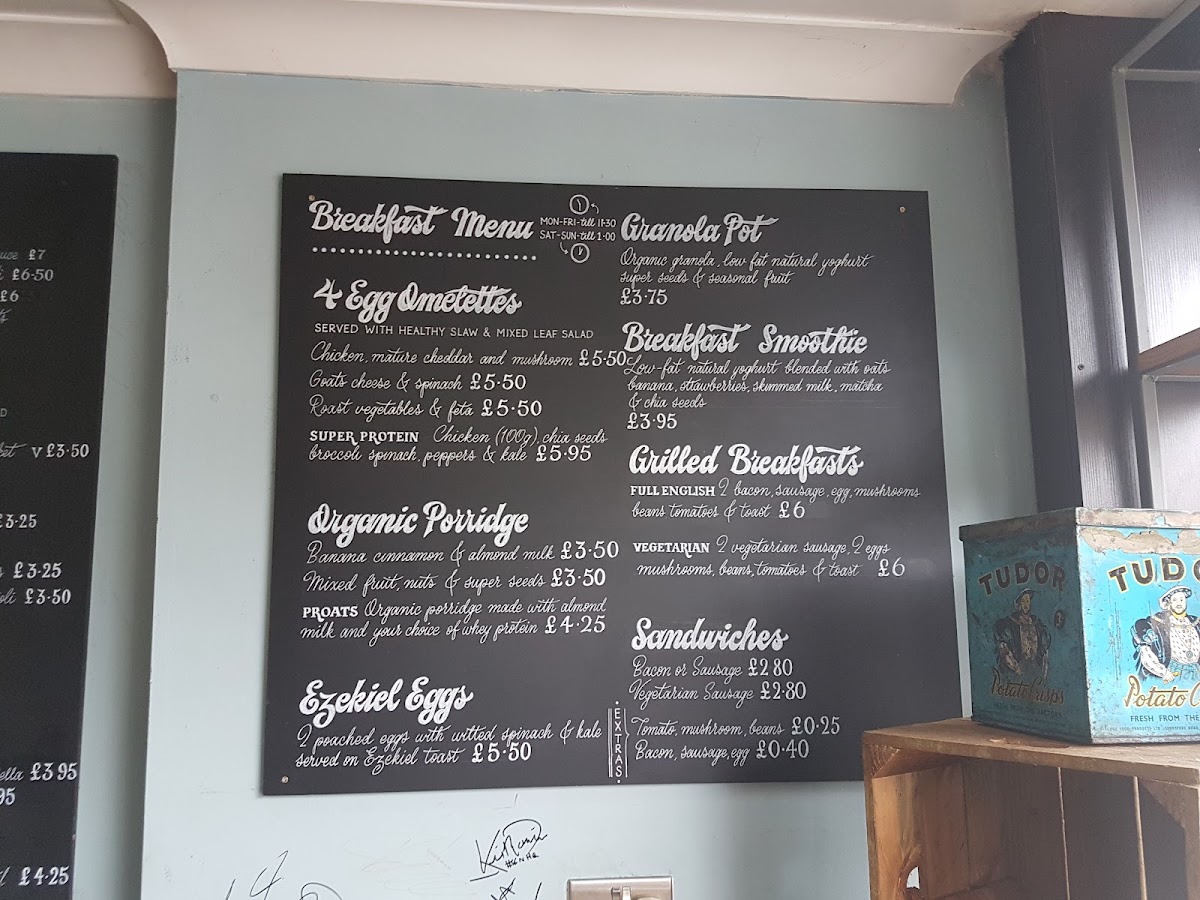 £7
£6.50
£6
v £3.50
£3.25
£3.25
£3.50
£3.95
95
£4.25
Breakfast Menu
MON-FRI-till 11·30
SAT-SUN-till 1·00
4 Egg Omelettes
SERVED WITH HEALTHY SLAW & MIXED LEAF SALAD
Chicken, mature cheddar and mushroom £5.50
Goats cheese & spinach £5.50
Roast vegetables & feta £5.50
SUPER PROTEIN Chicken (100g), chia seeds
broccoli spinach, peppers & kale £5.95
Organic Porridge
Banana cinnamon & almond milk £3.50
Mixed fruit, nuts & super seeds £3.50
PROATS Organic porridge made with almond
milk and your choice of whey protein £4.25
Ezekiel Eggs
2 poached eggs with wilted spinach & kale
served on Ezekiel toast £5.50
Granola Pot
Organic granola, low fat natural yoghurt
super seeds & seasonal fruit
£3.75
Breakfast Smoothie
Low-fat natural yoghurt blended with oats
banana, strawberries, skimmed milk, matcha
& chia seeds
£3.95
Grilled Breakfasts
FULL ENGLISH 2 bacon, sausage, egg, mushrooms
beans tomatoes & toast £6
VEGETARIAN 2 vegetarian sausage, 2 eggs
mushrooms, beans, tomatoes & toast £6
Sandwiches
Bacon or Sausage £2.80
Vegetarian Sausage £2.80
EXTRAS
Tomato, mushroom, beans £0.25
Bacon, sausage, egg £0.40
TUDOR
Potato Crisps
TUDO
Potato
FRESH FROM THE